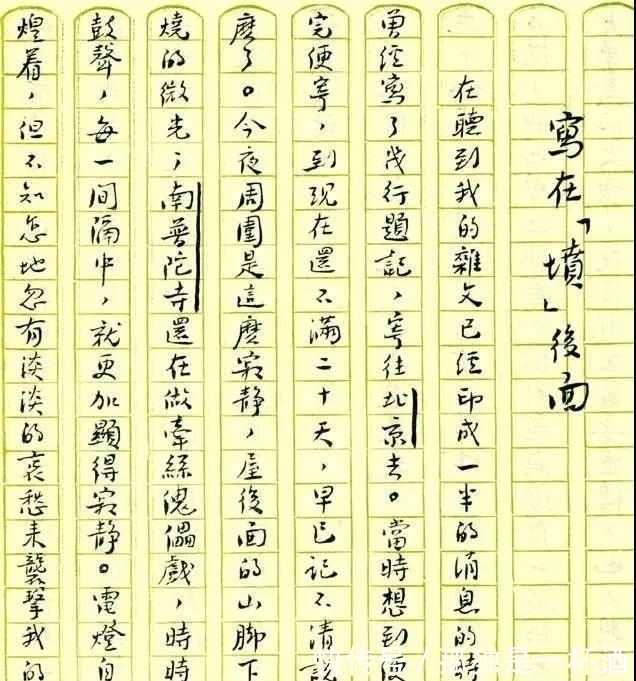 寫在「墳」後面
在聽到我的雜文已經印成一半的消息的時
曾經寫了幾行題記，寄往北京去。當時想到便
完便寄，到現在還不滿二十天，早已記不清說
麽了。今夜周圍是這麽寂靜，屋後面的山脚下
燒的微光；南普陀寺還在做牽絲傀儡戲，時時
鼓聲，每一間隔中，就更加顯得寂靜。電燈自
煌着，但不知怎地忽有淡淡的哀愁来襲擊我的
快传号 / 孤独是一杯酒